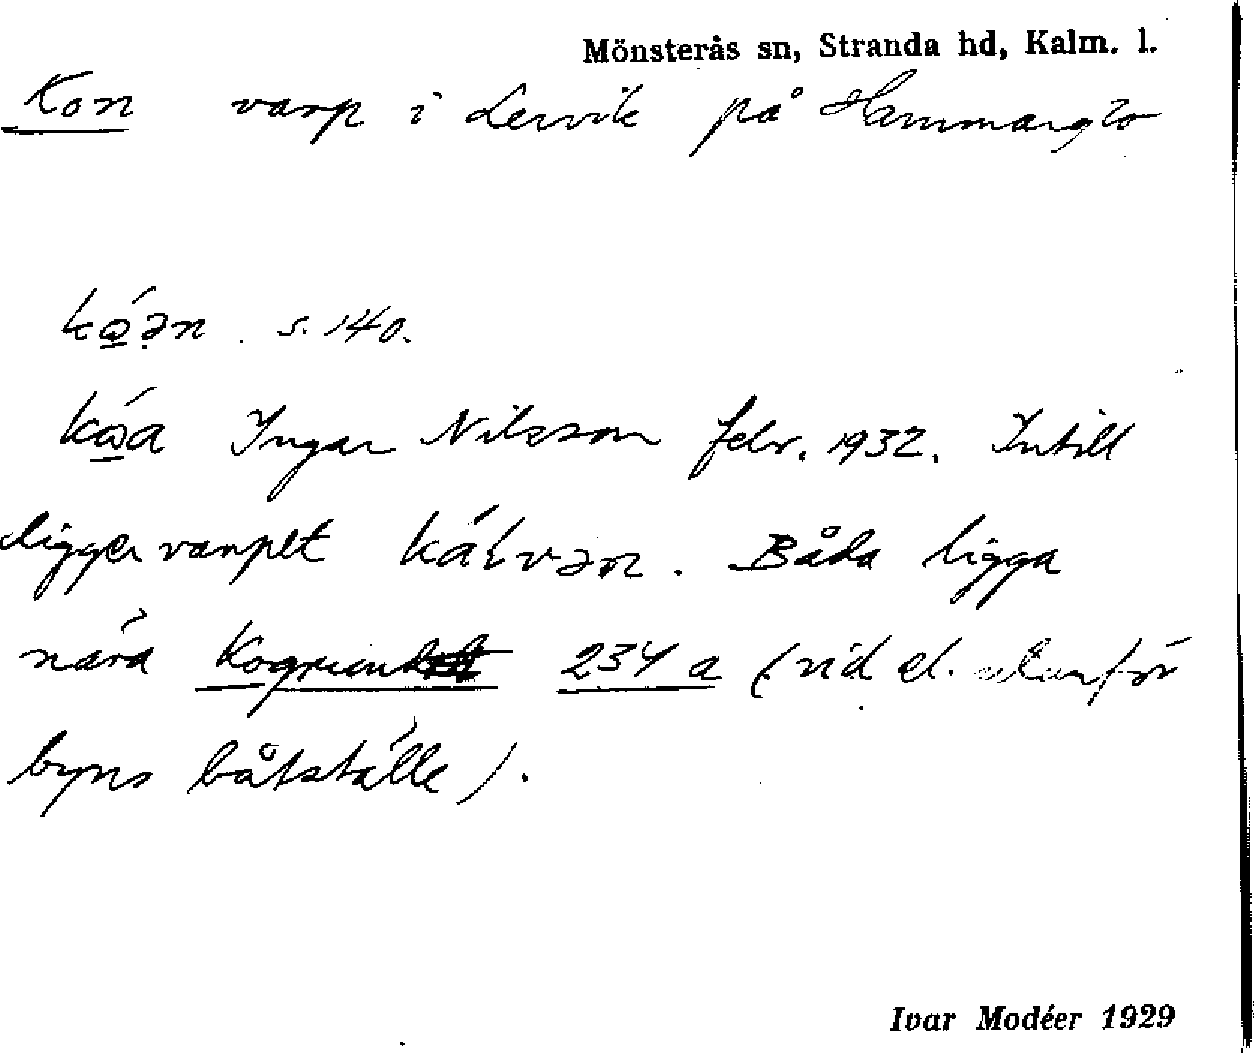 Mönsterås sn, Stranda hd, Kalm. l.
Kon varp i Lervik på Hammarglo
kǫ́ən. s. 140.
kǫ́a Ingar Nilsson febr. 1932. Intill
ligger varpet kálvən. Båda ligga
nära Kogrund 234 a (vid el. utanför
byns båtställe).
Ivar Modéer 1929